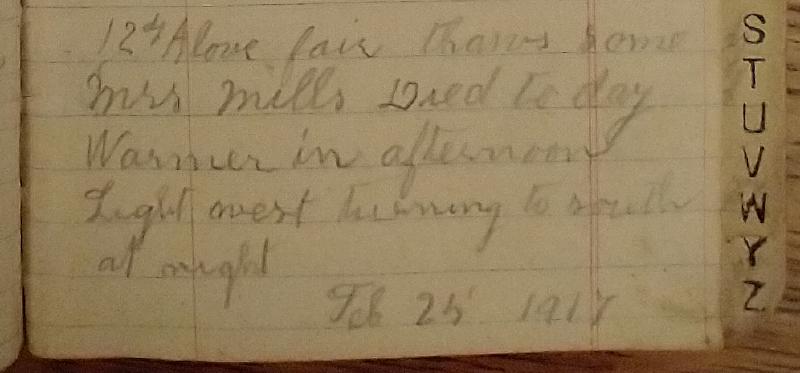 12th Above fair thaws some
Mrs Mills Died To day
Warmer in afternoon
Light west turning to south
at night
Feb 25 1917
S
T
U
V
W
Y
Z